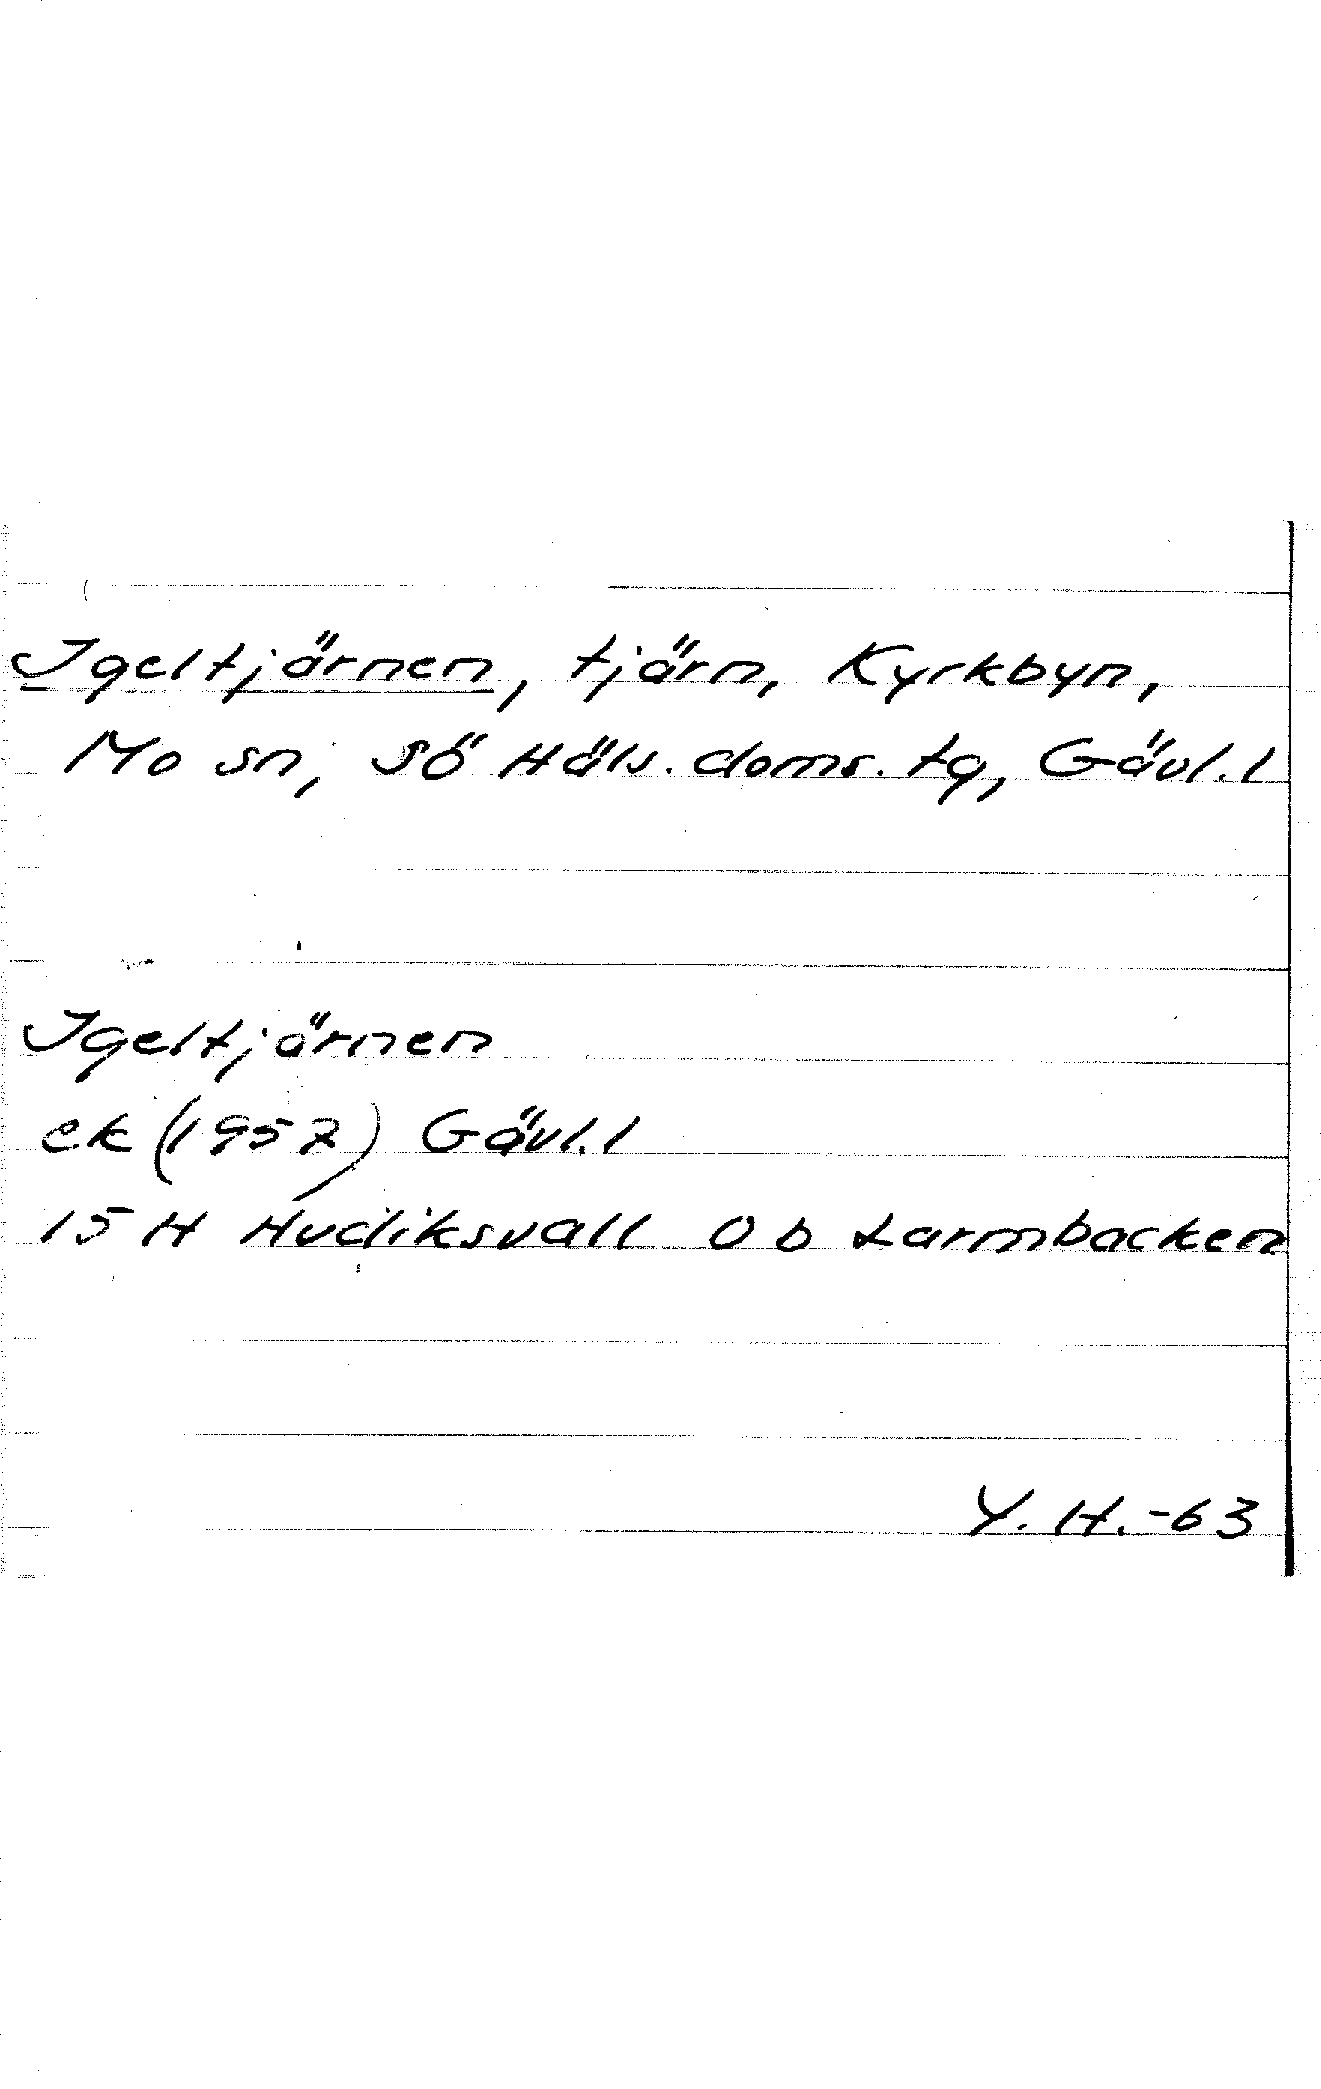 Igeltjärnen, tjärn, Kyrkbyn,
Mo sn, Sö Häls. doms. tg, Gävl. l
Igeltjärnen
ek (1957) Gävl. l
15 H Hudiksvall 0 b Larmbacken
Y. H. -63